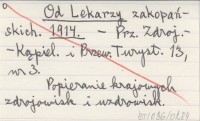 Od Lekarzy zakopań-
skich. 1914. - Prz. Zdroj.-
-Kąpiel. i Przew. Turyst. 13,
nr 3.
Popieranie krajowych
zdrojowisk i uzdrowisk.